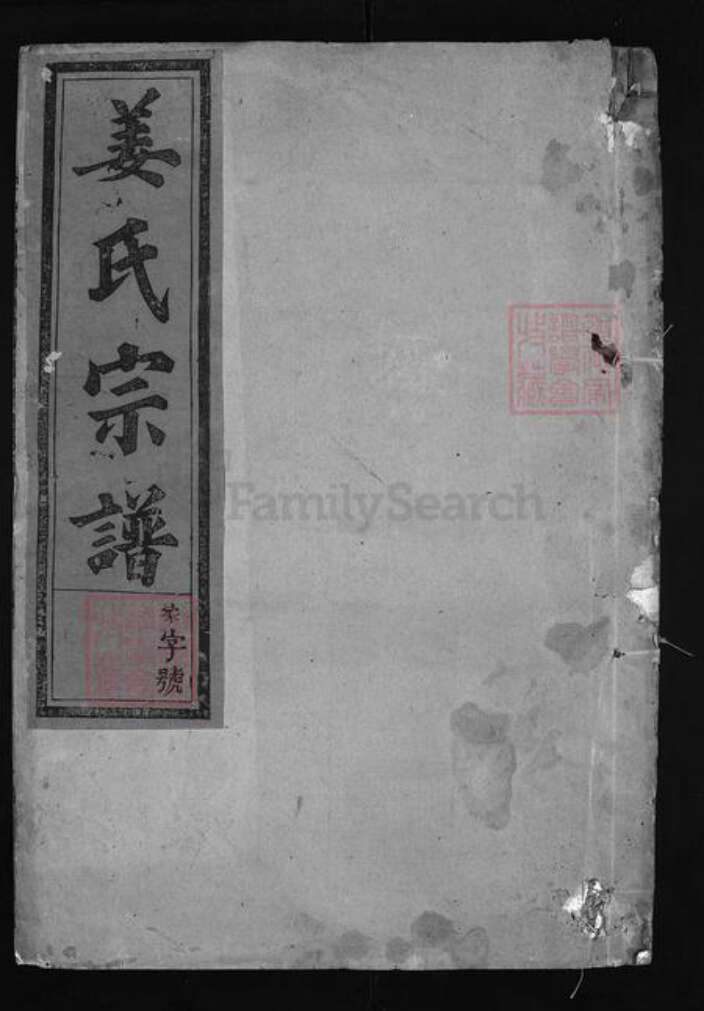 姜氏宗譜
字號
FamilySearch